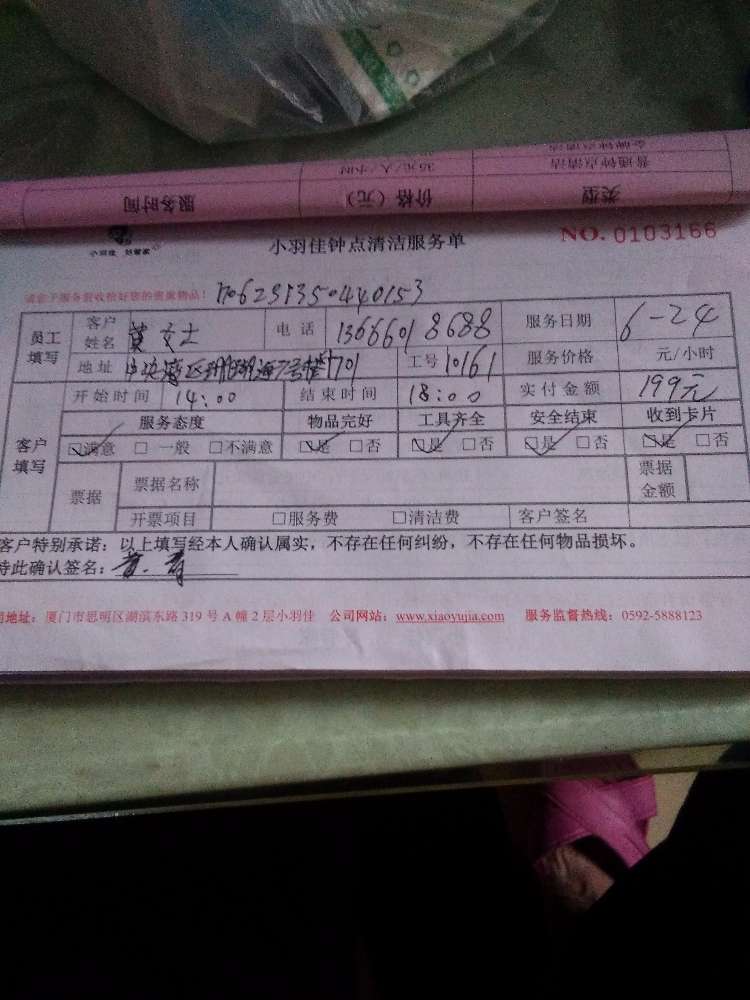 金牌钟点清洁
普通钟点清洁 35元/人/小时
类型 价格（元） 服务时间
小羽佳 好管家
小羽佳钟点清洁服务单 NO. 0103166
请您于服务前收检好您的贵重物品！ 170623135044０153
员工填写 客户姓名 黄女士 电话 13666018688 服务日期 6-24
地址 中央湾区 7号楼1701 工号 10161 服务价格 元/小时
客户填写 开始时间 14:00 结束时间 18:00 实付金额 199元
服务态度 物品完好 工具齐全 安全结束 收到卡片
☑满意 □一般 □不满意 ☑是 □否 ☑是 □否 ☑是 □否 ☑是 □否
票据 票据名称 票据金额
开票项目 □服务费 □清洁费 客户签名
客户特别承诺：以上填写经本人确认属实，不存在任何纠纷，不存在任何物品损坏。
特此确认签名：
司地址：厦门市思明区湖滨东路 319 号 A 幢 2 层小羽佳 公司网站：www.xiaoyujia.com 服务监督热线：0592-5888123